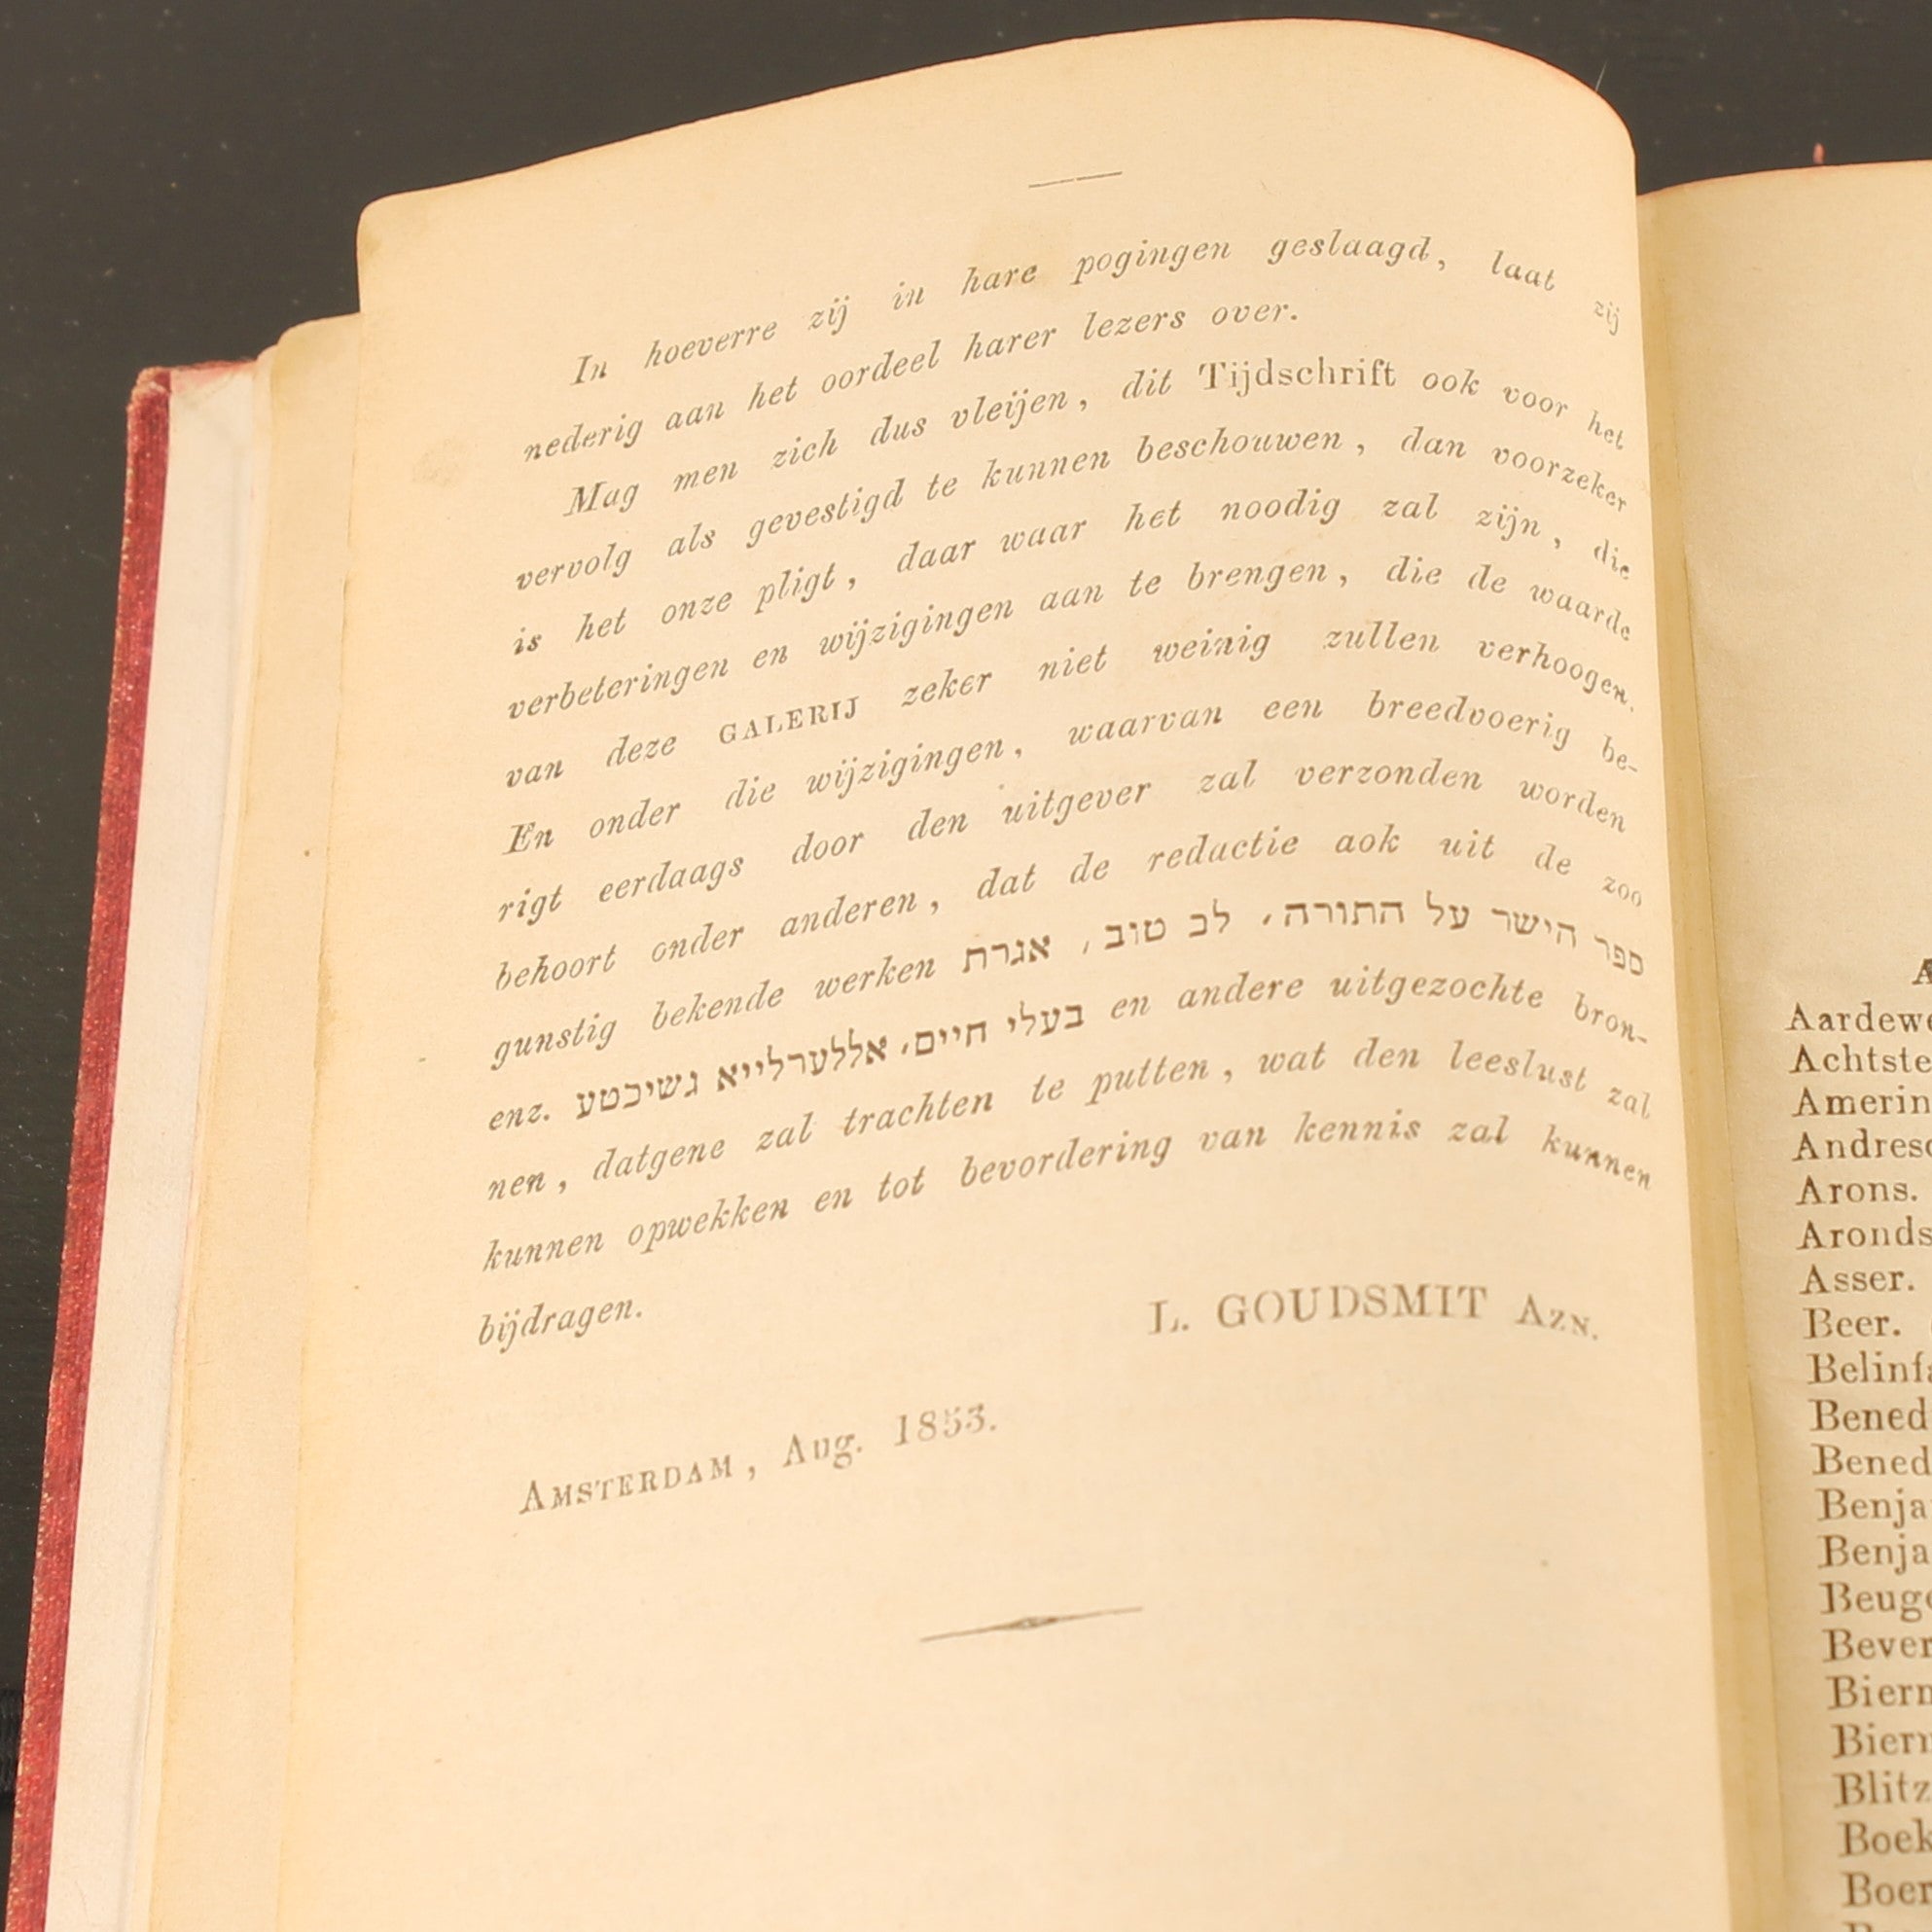 In hoeverre zij in hare pogingen geslaagd, laat zij
nederig aan het oordeel harer lezers over.
Mag men zich dus vleijen, dit Tijdschrift ook voor het
vervolg als gevestigd te kunnen beschouwen, dan voorzeker
is het onze pligt, daar waar het noodig zal zijn, die
verbeteringen en wijzigingen aan te brengen, die de waarde
van deze GALERIJ zeker niet weinig zullen verhoogen.
En onder die wijzigingen, waarvan een breedvoerig be-
rigt eerdaags door den uitgever zal verzonden worden
behoort onder anderen, dat de redactie aok uit de zoo
gunstig bekende werken ספר הישר על התורה, לב טוב, אגרת
בעלי חיים, אללערלייא גשיכטע enz. en andere uitgezochte bron-
nen, datgene zal trachten te putten, wat den leeslust zal
kunnen opwekken en tot bevordering van kennis zal kunnen
bijdragen.
L. GOUDSMIT Azn.
AMSTERDAM, Aug. 1853.
Achtste
Arons.
Asser.
Beer.